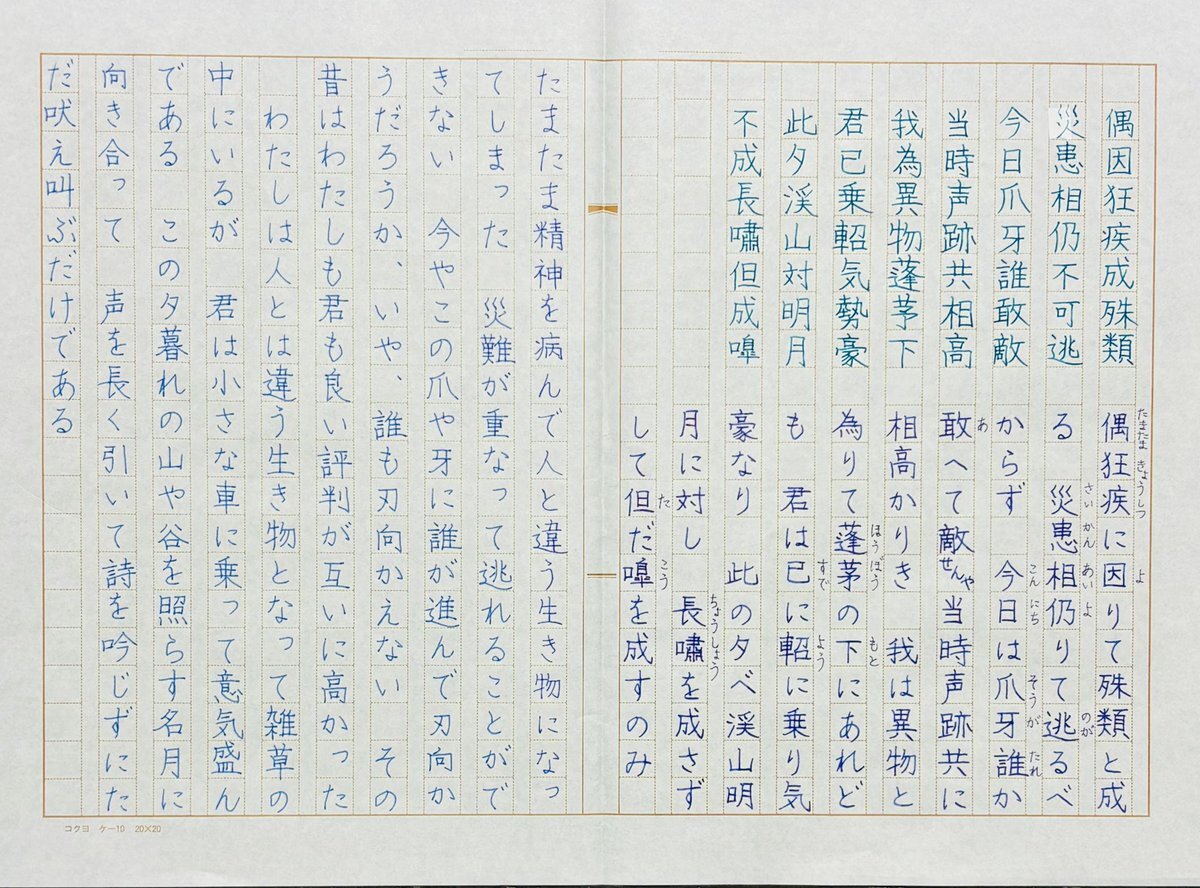 偶因狂疾成殊類
災患相仍不可逃
今日爪牙誰敢敵
当時声跡共相高
我為異物蓬茅下
君已乗軺気勢豪
此夕渓山対明月
不成長嘯但成嘷
たまたま きょうしつ よ
偶狂疾に因りて殊類と成
さい かん あい よ のが
る　災患相仍りて逃るべ
こん にち そう が たれ
からず　今日は爪牙誰か
あ
敢へて敵せんや当時声跡共に
もと
相高かりき　我は異物と
ほう ぼう
為りて蓬茅の下にあれど
すで よう
も　君は已に軺に乗り気
豪なり　此の夕べ渓山明
ちょうしょう
月に対し　長嘯を成さず
た こう
して但だ嘷を成すのみ
たまたま精神を病んで人と違う生き物になっ
てしまった　災難が重なって逃れることがで
きない　今やこの爪や牙に誰が進んで刃向か
うだろうか、いや、誰も刃向かえない　その
昔はわたしも君も良い評判が互いに高かった
わたしは人とは違う生き物となって雑草の
中にいるが　君は小さな車に乗って意気盛ん
である　この夕暮れの山や谷を照らす名月に
向き合って　声を長く引いて詩を吟じずにた
だ吠え叫ぶだけである
コクヨ ケー10 20×20